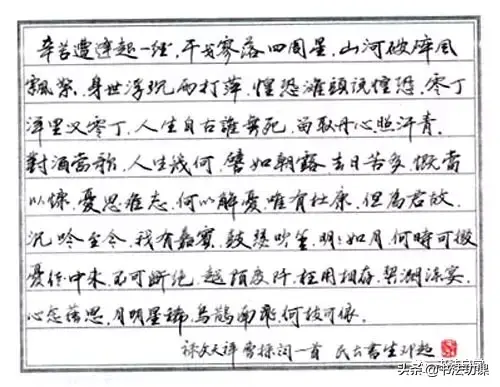 辛苦遭逢起一经，干戈寥落四周星，山河破碎风
飘絮，身世浮沉雨打萍，惶恐滩头说惶恐，零丁
洋里叹零丁，人生自古誰無死，留取丹心照汗青．
對酒當歌，人生幾何，譬如朝露去日苦多，慨當
以慷，憂思难忘，何以解憂唯有杜康，但為君故
沉吟至今，我有嘉賓，鼓瑟吹笙，明明如月，何時可掇
憂從中来，不可断绝，越陌度阡，枉用相存，契濶谈宴，
心念舊思，月明星稀，烏鵲南飛，何枝可依．
錄文天祥曹操詞一首
头条@书法功课